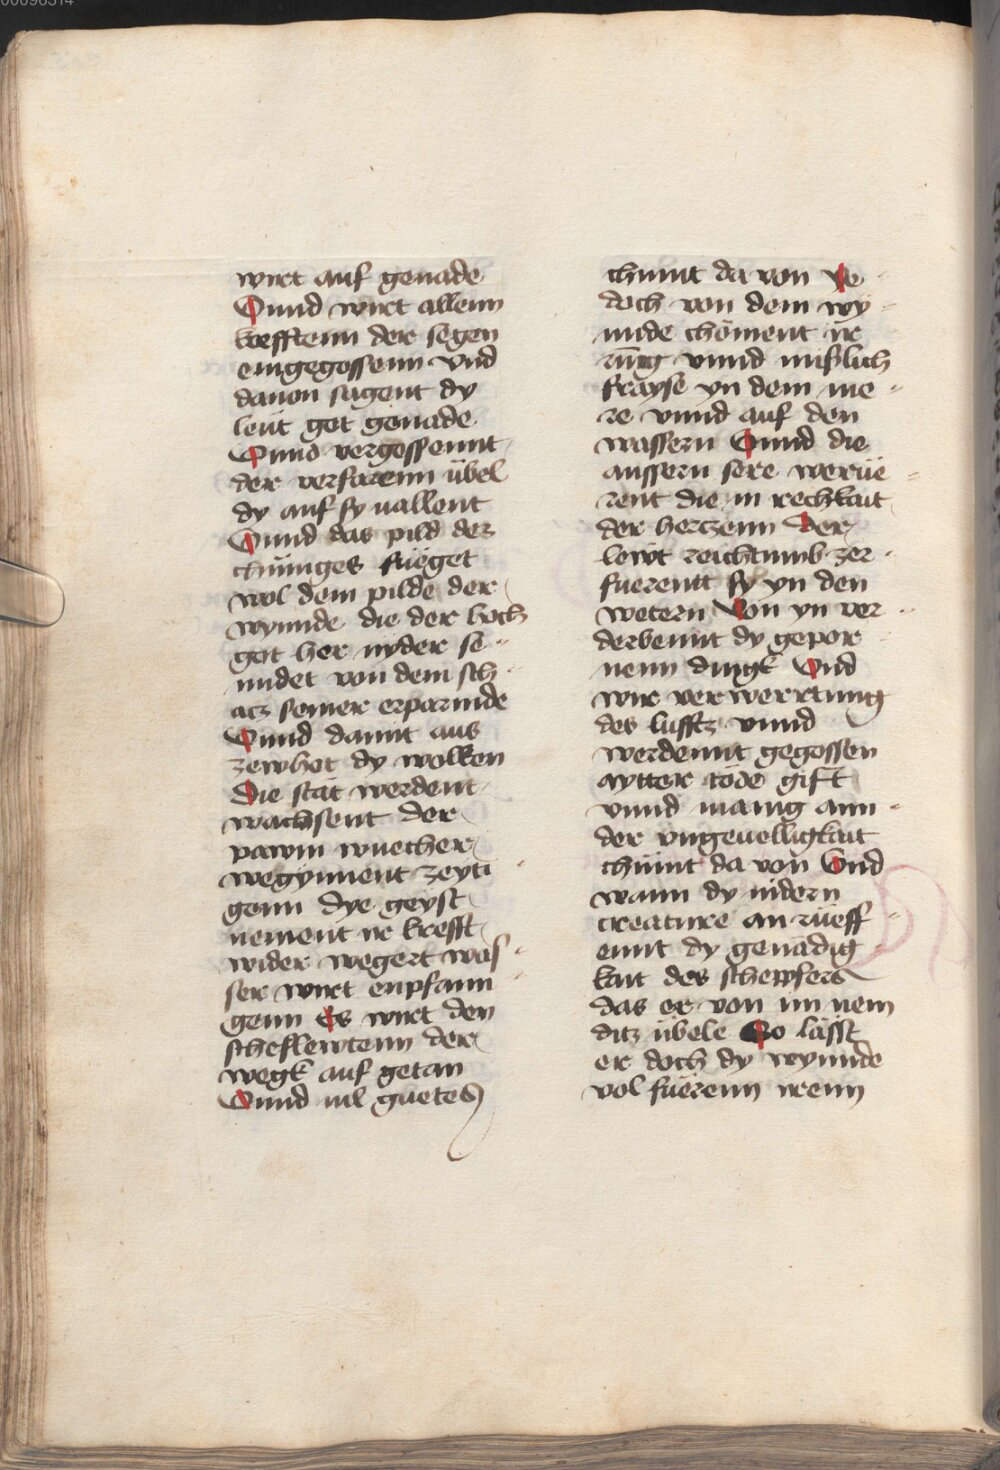 00096314
wirt auf genade
Vnnd wirt allenn
krefftenn der segen
eingegossenn vnd
dauon sagent dy
leüt got genade
Vnnd vergossennt
der verfarenn übel
dy auf sy uallent
Vnnd das pild des
chüniges füeget
wol dem pilde der
wynnde die der hoch
got her nyder se
nndet von dem sch
acz seiner erparmde
Vnnd damit aus
zewhet dy wolken
Die stät werdent
wachsent der
pawm wuecher
wegynnent zeyti
genn Dye geyst
nement ir krefft
wider wegert was
ser wirt enpfann
genn Es wirt den
scheflewtenn der
wegk auf getan
Vnnd uil guetes
chumt da von Ye
doch von dem wy
nnde chöment ir
rung vnnd mislich
frayse yn dem me
re vnnd auf den
wassern Vnnd die
aussern sere werüe
rent die in rechkait
der herczenn Der
lewt reichtumb zer
fuerentt sy yn den
wetern Von yn ver
derbennt dy gepor
nenn dingk Vnd
wir verwerrtung
des luffts vnnd
werdennt gegossen
aytter töde gift
vnnd manig ann
der vngeuelligkait
chümt da von Vnd
wann dy nidern
creature an rüeff
ennt dy genadig
kait des schepfers
das er von im nem
ditz übele So lässt
er doch dy wynnde
vol füerenn irenn